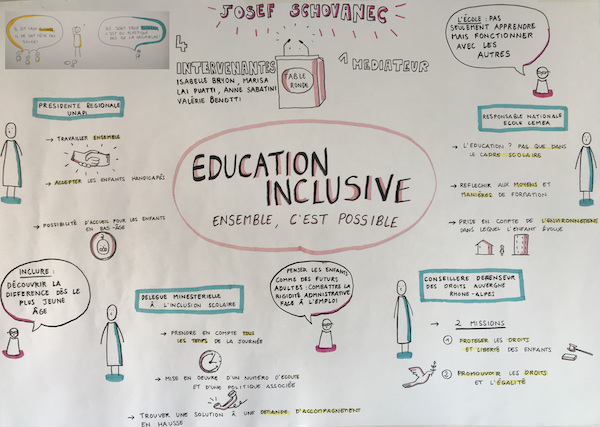 JOSEF SCHOVANEC
4
INTERVENANTES
ISABELLE BRYON, MARISA
LAI PUATTI, ANNE SABATINI
VALÉRIE BENOTTI
TABLE
RONDE
1 MEDIATEUR
L'ÉCOLE : PAS
SEULEMENT APPRENDRE
MAIS FONCTIONNER
AVEC LES
AUTRES
PRÉSIDENTE REGIONALE
UNAPI
→ TRAVAILLER ENSEMBLE
→ ACCEPTER LES ENFANTS HANDICAPÉS
→ POSSIBILITÉ D'ACCUEIL POUR LES ENFANTS
EN BAS-ÂGE
EDUCATION
INCLUSIVE
ENSEMBLE, C'EST POSSIBLE
RESPONSABLE NATIONALE
ECOLE CEMEA
→ L'ÉDUCATION ? PAS QUE DANS
LE CADRE SCOLAIRE
→ REFLECHIR AUX MOYENS ET
MANIÈRES DE FORMATION
→ PRISE EN COMPTE DE L'ENVIRONNEMENT
DANS LEQUEL L'ENFANT ÉVOLUE
INCLURE :
DÉCOUVRIR LA
DIFFERENCE DÈS LE
PLUS JEUNE
ÂGE
DELEGUE MINISTERIELLE
À L'INCLUSION SCOLAIRE
→ PRENDRE EN COMPTE TOUS
LES TEMPS DE LA JOURNÉE
→ MISE EN OEUVRE D'UN NUMERO D'ECOUTE
ET D'UNE POLITIQUE ASSOCIÉE
→ TROUVER UNE SOLUTION À UNE DEMANDE D'ACCOMPAGNEMENT
EN HAUSSE
PENSER LES ENFANTS
COMME DES FUTURS
ADULTES : COMBATTRE LA
RIGIDITÉ ADMINISTRATIVE
FACE À L'EMPLOI
CONSEILLERE DEFENSEUR
DES DROITS AUVERGNE
RHONE-ALPES
→ 2 MISSIONS
1 PROTEGER LES DROITS
ET LIBERTÉ DES ENFANTS
2 PROMOUVOIR LES DROITS
ET L'ÉGALITÉ